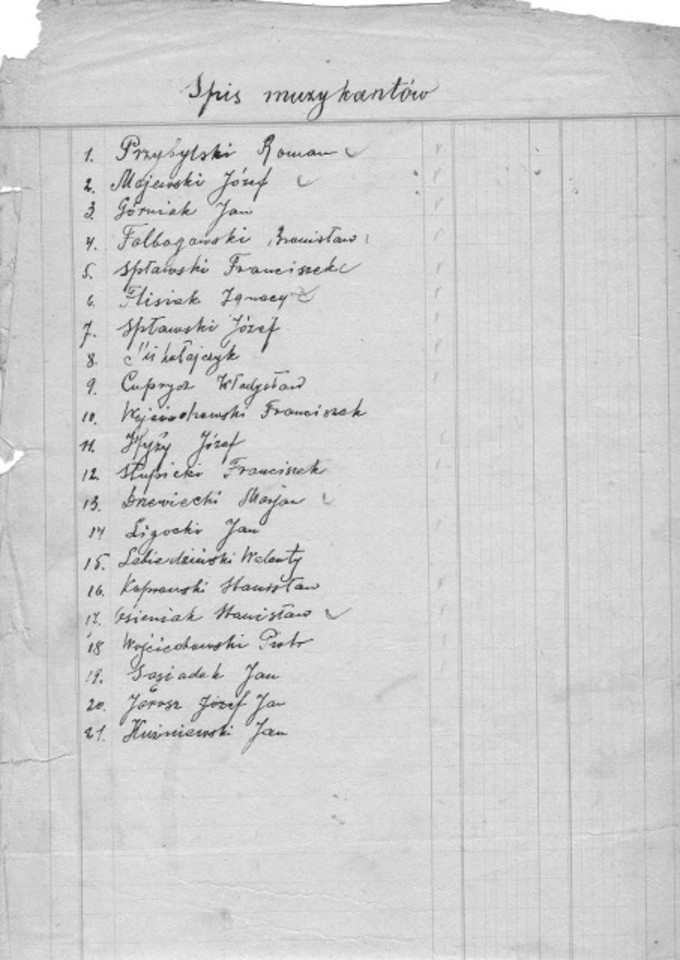 Spis muzykantów
1. Przybylski Roman
2. Majewski Józef
3. Górniak Jan
4. Falbogowski Bronisław
5. Spławski Franciszek
6. Flisiak Ignacy
7. Spławski Józef
8. Mikołajczyk
9. Cupryś Władysław
10. Wojciechowski Franciszek
11. Hyży Józef
12. Słupicki Franciszek
13. Drewiecki Marjan
14 Ligocki Jan
15. Lebiedziński Walenty
16. Kuprowski Stanisław
17. Stanisław
18 Wojciechowski Piotr
19. Gąsiadek Jan
20. Jarosz Józef Jan
21. Kuźniewski Jan